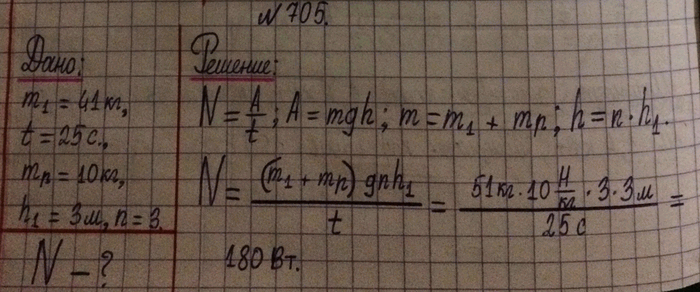 №705.
Дано:
m₁ = 41 кг,
t = 25 с.,
mр = 10 кг,
h₁ = 3 м, n = 3.
N – ?
Решение:
N = A/t; A = mgh; m = m₁ + mр; h = n · h₁.
N = (m₁ + mр) gnh₁ / t = 51 кг · 10 Н/кг · 3 · 3 м / 25 с =
180 Вт.